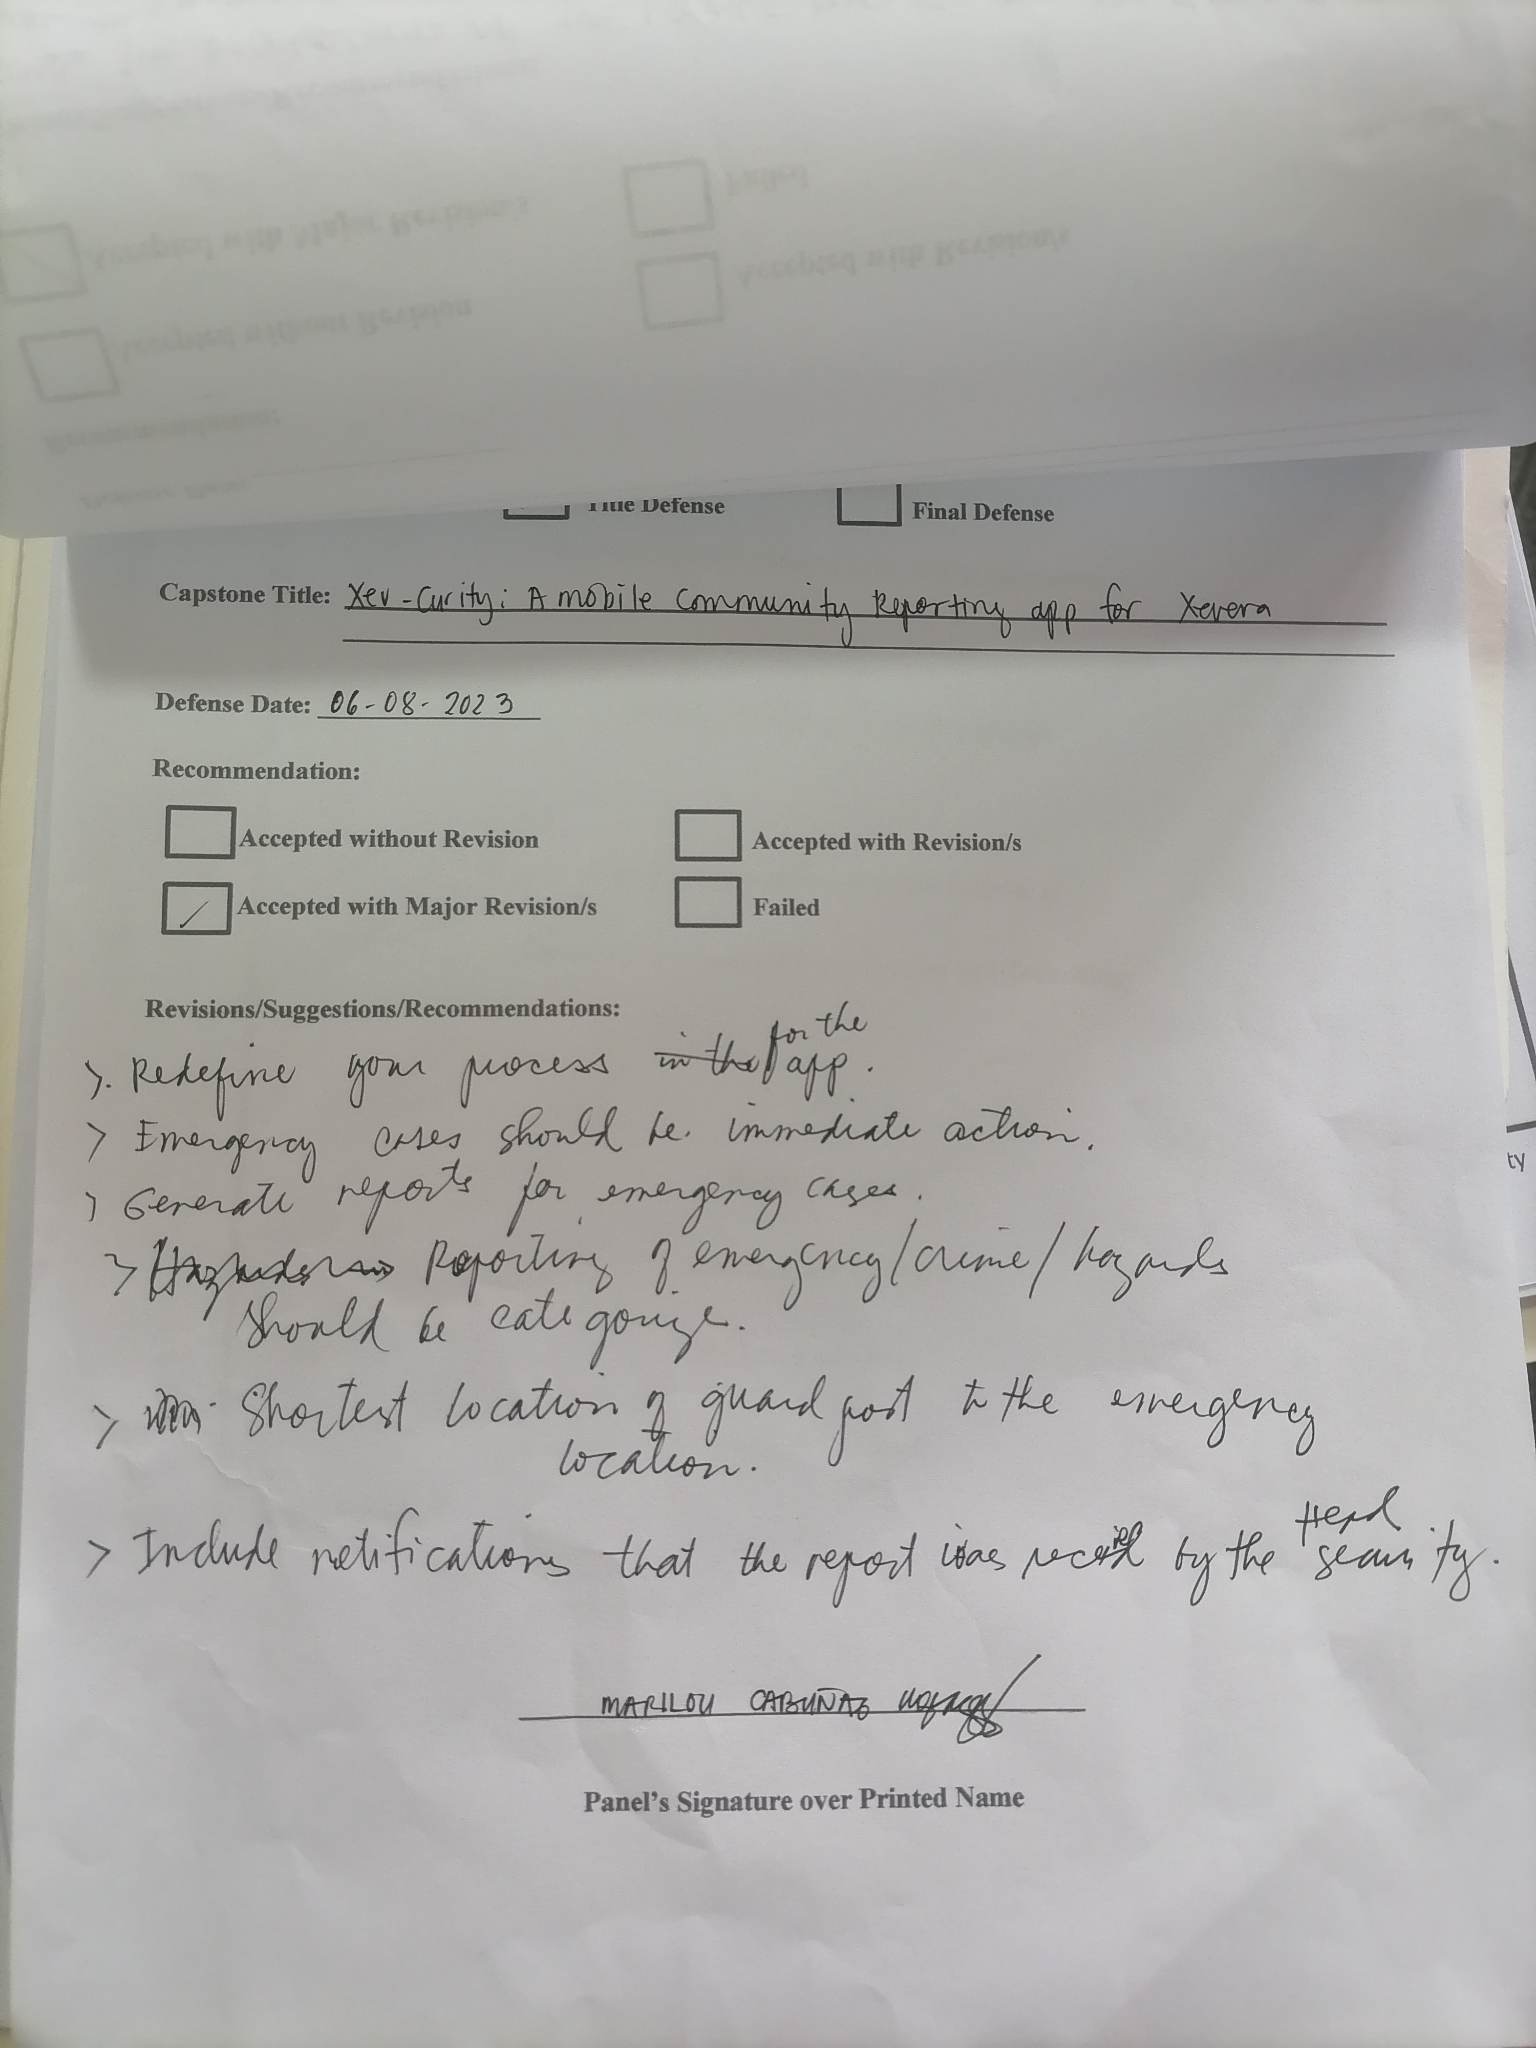 Title Defense
Final Defense
Capstone Title: Xev-Curity: A mobile Community Reporting app for Xevera
Defense Date: 06-08-2023
Recommendation:
Accepted without Revision
Accepted with Revision/s
Accepted with Major Revision/s
Failed
Revisions/Suggestions/Recommendations:
> Redefine your process in the for the app.
> Emergency cases should be immediate action.
> Generate reports for emergency cases.
> Reporting of emergency/crime/hazards
should be categorize.
> Shortest location of guard post to the emergency
location.
> Include notifications that the report was received by the Head security.
MARILOU CABUÑAG
Panel's Signature over Printed Name
ty